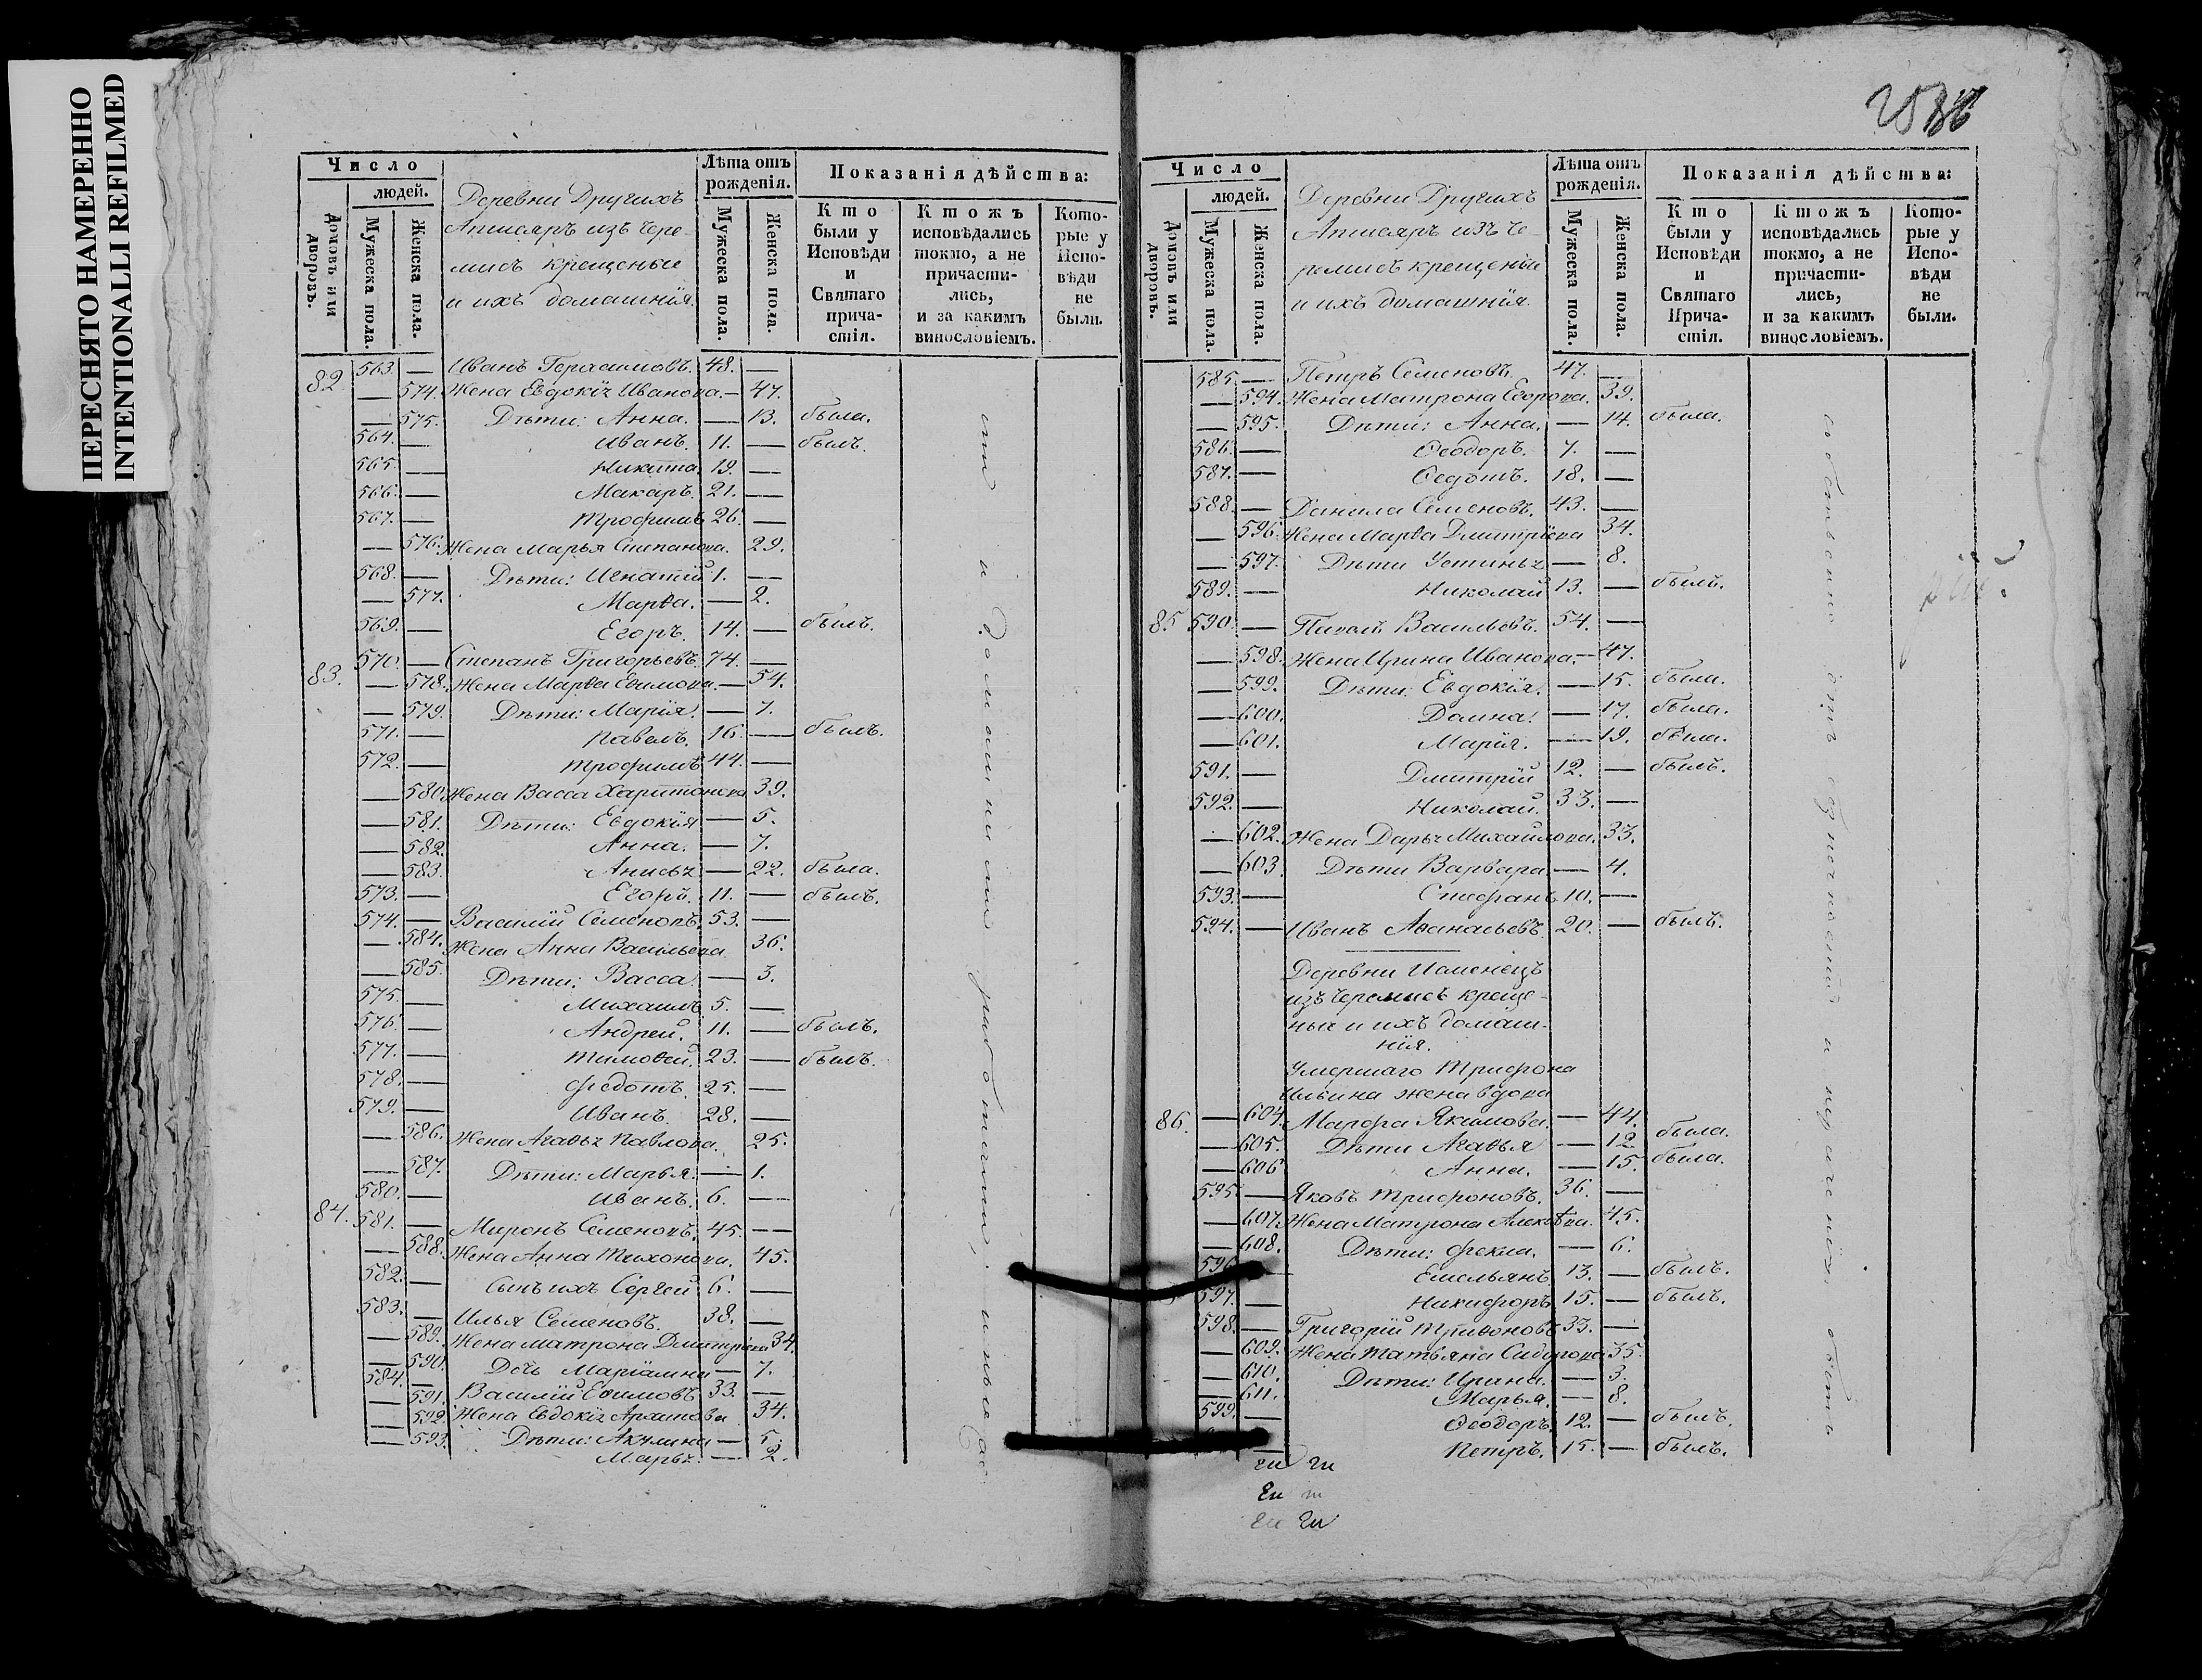 ПЕРЕСНЯТО НАМЕРЕННО
INTENTIONALLI REFILMED
Число
людей.
Домовъ или дворовъ.
Мужеска пола.
Женска пола.
Деревни Другихъ
Апшеяръ изъ Чере-
мисъ крещеные
и ихъ домашнія.
Лѣта отъ рожденія.
Мужеска пола.
Женска пола.
Показанія дѣйства:
Кто были у Исповѣди и Святаго причастія.
Ктожъ исповѣдались токмо, а не причастились, и за какимъ винословіемъ.
Которые у Исповѣди не были.
82 563. — Иванъ Герасимовъ. 48. —
— 574. Жена Евдокія Иванова. — 47.
— 575. Дѣти: Анна. — 13. была.
564. — Иванъ. 11. — былъ.
565. — Никита. 19. —
566. — Макаръ. 21. —
567. — Трофимъ 26. —
— 576. Жена Марья Степанова. 29.
568. — Дѣти: Игнатій 1. —
— 577. Марѳа. — 2.
569. — Егоръ. 14. — былъ.
83. 570. — Степанъ Григорьевъ. 74. —
— 578. Жена Марѳа Еѳимова. — 54.
— 579. Дѣти: Марія. — 7.
571. — Павелъ. 16. — былъ.
572. — Трофимъ 44. —
— 580. Жена Васса Харитонова 39.
— 581. Дѣти: Евдокія — 5.
— 582. Анна. — 7.
— 583. Анисья — 22. была.
573. — Егоръ. 11. — былъ.
574. — Василій Семеновъ. 53. —
— 584. Жена Анна Васильева 36.
— 585. Дѣти: Васса — 3.
575. — Михаилъ 5. —
576. — Андрей. 11. — былъ.
577. — Тимоѳей. 23. — былъ.
578. — Федотъ. 25. —
579. — Иванъ. 28. —
— 586. Жена Агаѳья Павлова. 25.
— 587. Дѣти: Марья. — 1.
580. — Иванъ. 6. —
84. 581. — Миронъ Семеновъ. 45. —
— 588. Жена Анна Тихонова. 45.
582. — Сынъ ихъ Сергей 6. —
583. — Илья Семеновъ. 38. —
— 589. Жена Матрона Дмитріева 34.
— 590. Дочь Маріамна — 7.
584. — Василій Еѳимовъ. 33. —
— 591. Жена Евдокія Архипова 34.
— 592. Дѣти: Акулина — 5.
— 593. Марья. — 2.
и домашними работами, иные
Число
людей.
Домовъ или дворовъ.
Мужеска пола.
Женска пола.
Деревни Другихъ
Апшеяръ изъ Че-
ремисъ крещеные
и ихъ домашнія.
Лѣта отъ рожденія.
Мужеска пола.
Женска пола.
Показанія дѣйства:
Кто были у Исповѣди и Святаго Причастія.
Ктожъ исповѣдались токмо, а не причастились, и за какимъ винословіемъ.
Которые у Исповѣди не были.
585. — Петръ Семеновъ. 47. —
— 594. Жена Матрона Егорова. 39.
— 595. Дѣти: Анна. — 14. была.
586. — Ѳеодоръ. 7. —
587. — Ѳедотъ. 18. —
588. — Данила Семеновъ. 43. —
— 596. Жена Марѳа Дмитріева 34.
— 597. Дѣти Устинья — 8.
589. — Николай 13. — былъ.
85 590. — Васильевъ. 54. —
— 598. Жена Ирина Иванова. — 47.
— 599. Дѣти: Евдокія. — 15. была.
— 600. Домна. — 17. была.
— 601. Марія. — 19. была.
591. — Дмитрій 12. — былъ.
592. — Николай. 33. —
— 602. Жена Дарья Михайлова. 33.
— 603. Дѣти Варвара — 4.
593. — Стефанъ 10. —
594. — Иванъ Аѳанасьевъ. 20. — былъ.
Деревни Исменецъ
изъ Черемисъ креще-
ные и ихъ домаш-
нія.
Умершаго Трифона
Ильина жена вдова
86. — 604. Марфа Якимова. — 44.
— 605. Дѣти Агаѳья — 12. была.
— 606 Анна. — 15. была.
595. — Яковъ Трифоновъ. 36. —
— 607. Жена Матрона Алексѣева. 45.
— 608. Дѣти: Фекла. — 6.
596. — Емельянъ 13. — былъ.
597. — Никифоръ 15. — былъ.
598. — Григорій Триѳоновъ 33. —
— 609. Жена Татьяна Сидорова 35.
— 610. Дѣти: Ирина. — 3.
— 611. Марья. — 8.
599. — Ѳеодоръ 12. — былъ.
— Петръ. 15. — былъ.
собственно отъ